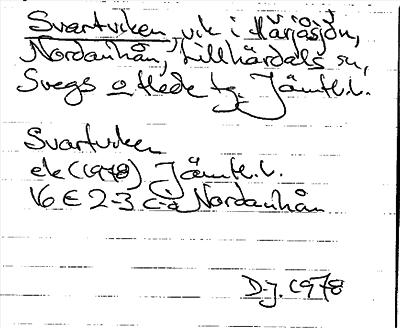 Svartviken, vik i Härjåsjön,
Nordanhån, Lillhärdals sn,
Svegs o Hede tg. Jämtl.l.
Svartviken
ek (1978) Jämtl.l.
16 E 2-3 c-d Nordanhån
D-j. 1978